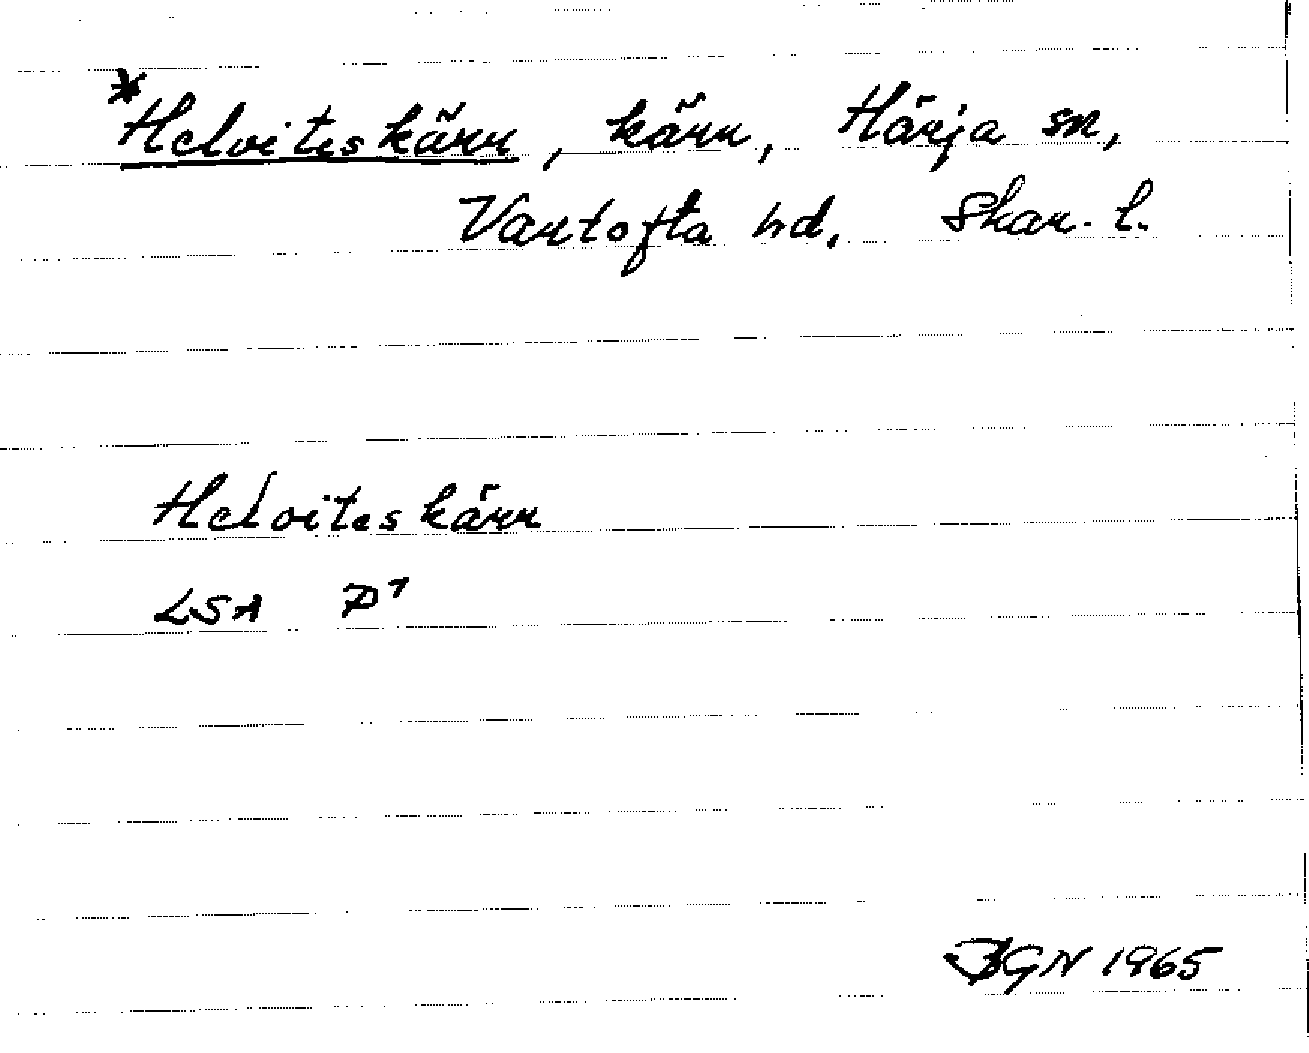 *Helviteskärr, kärr, Härja sn,
Vartofta hd. Skar. l.
Helviteskärr
LSA P7
JGN 1965